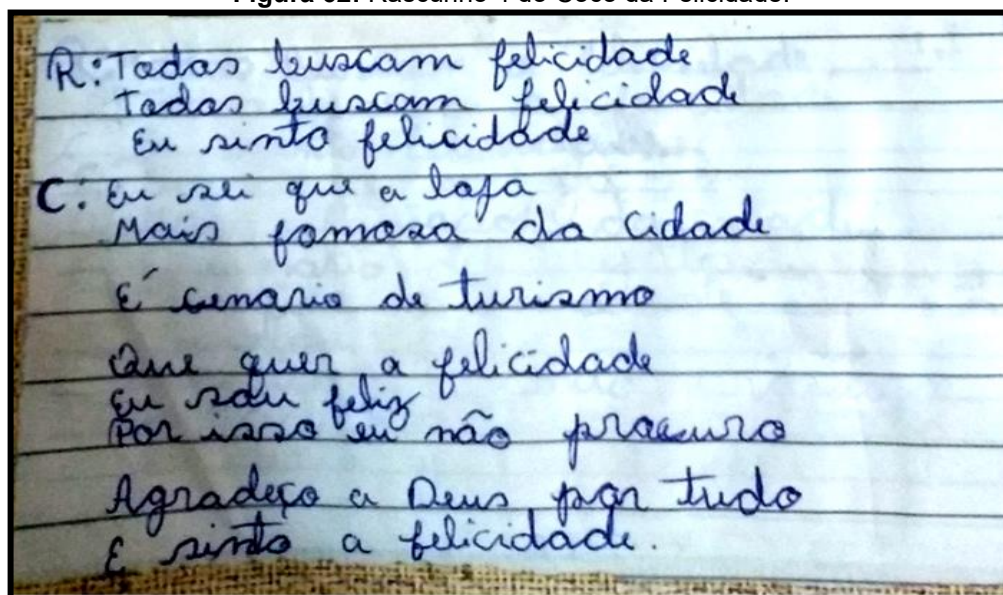 R: Todos buscam felicidade
Todos buscam felicidade
Eu sinto felicidade
C: Eu sei que a lapa
Mais famosa da cidade
É cenario de turismo
Que quer a felicidade
Eu sou feliz
Por isso eu não procuro
Agradeço a Deus por tudo
E sinto a felicidade.